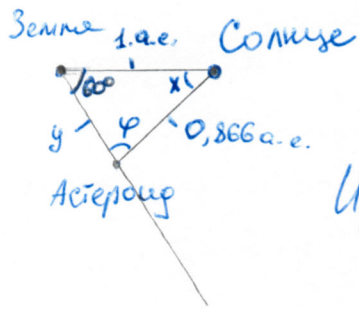 Земля 1 а.е. Солнце
60° x
y φ 0,866 а.е.
Астероид
И